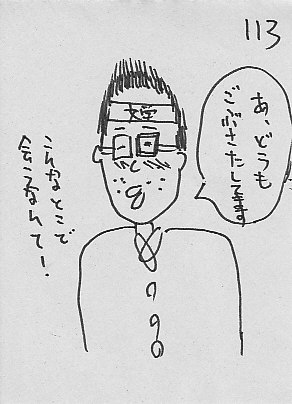 113
あ、どうも
ごぶさたしてます
こんなとこで
会うなんて！